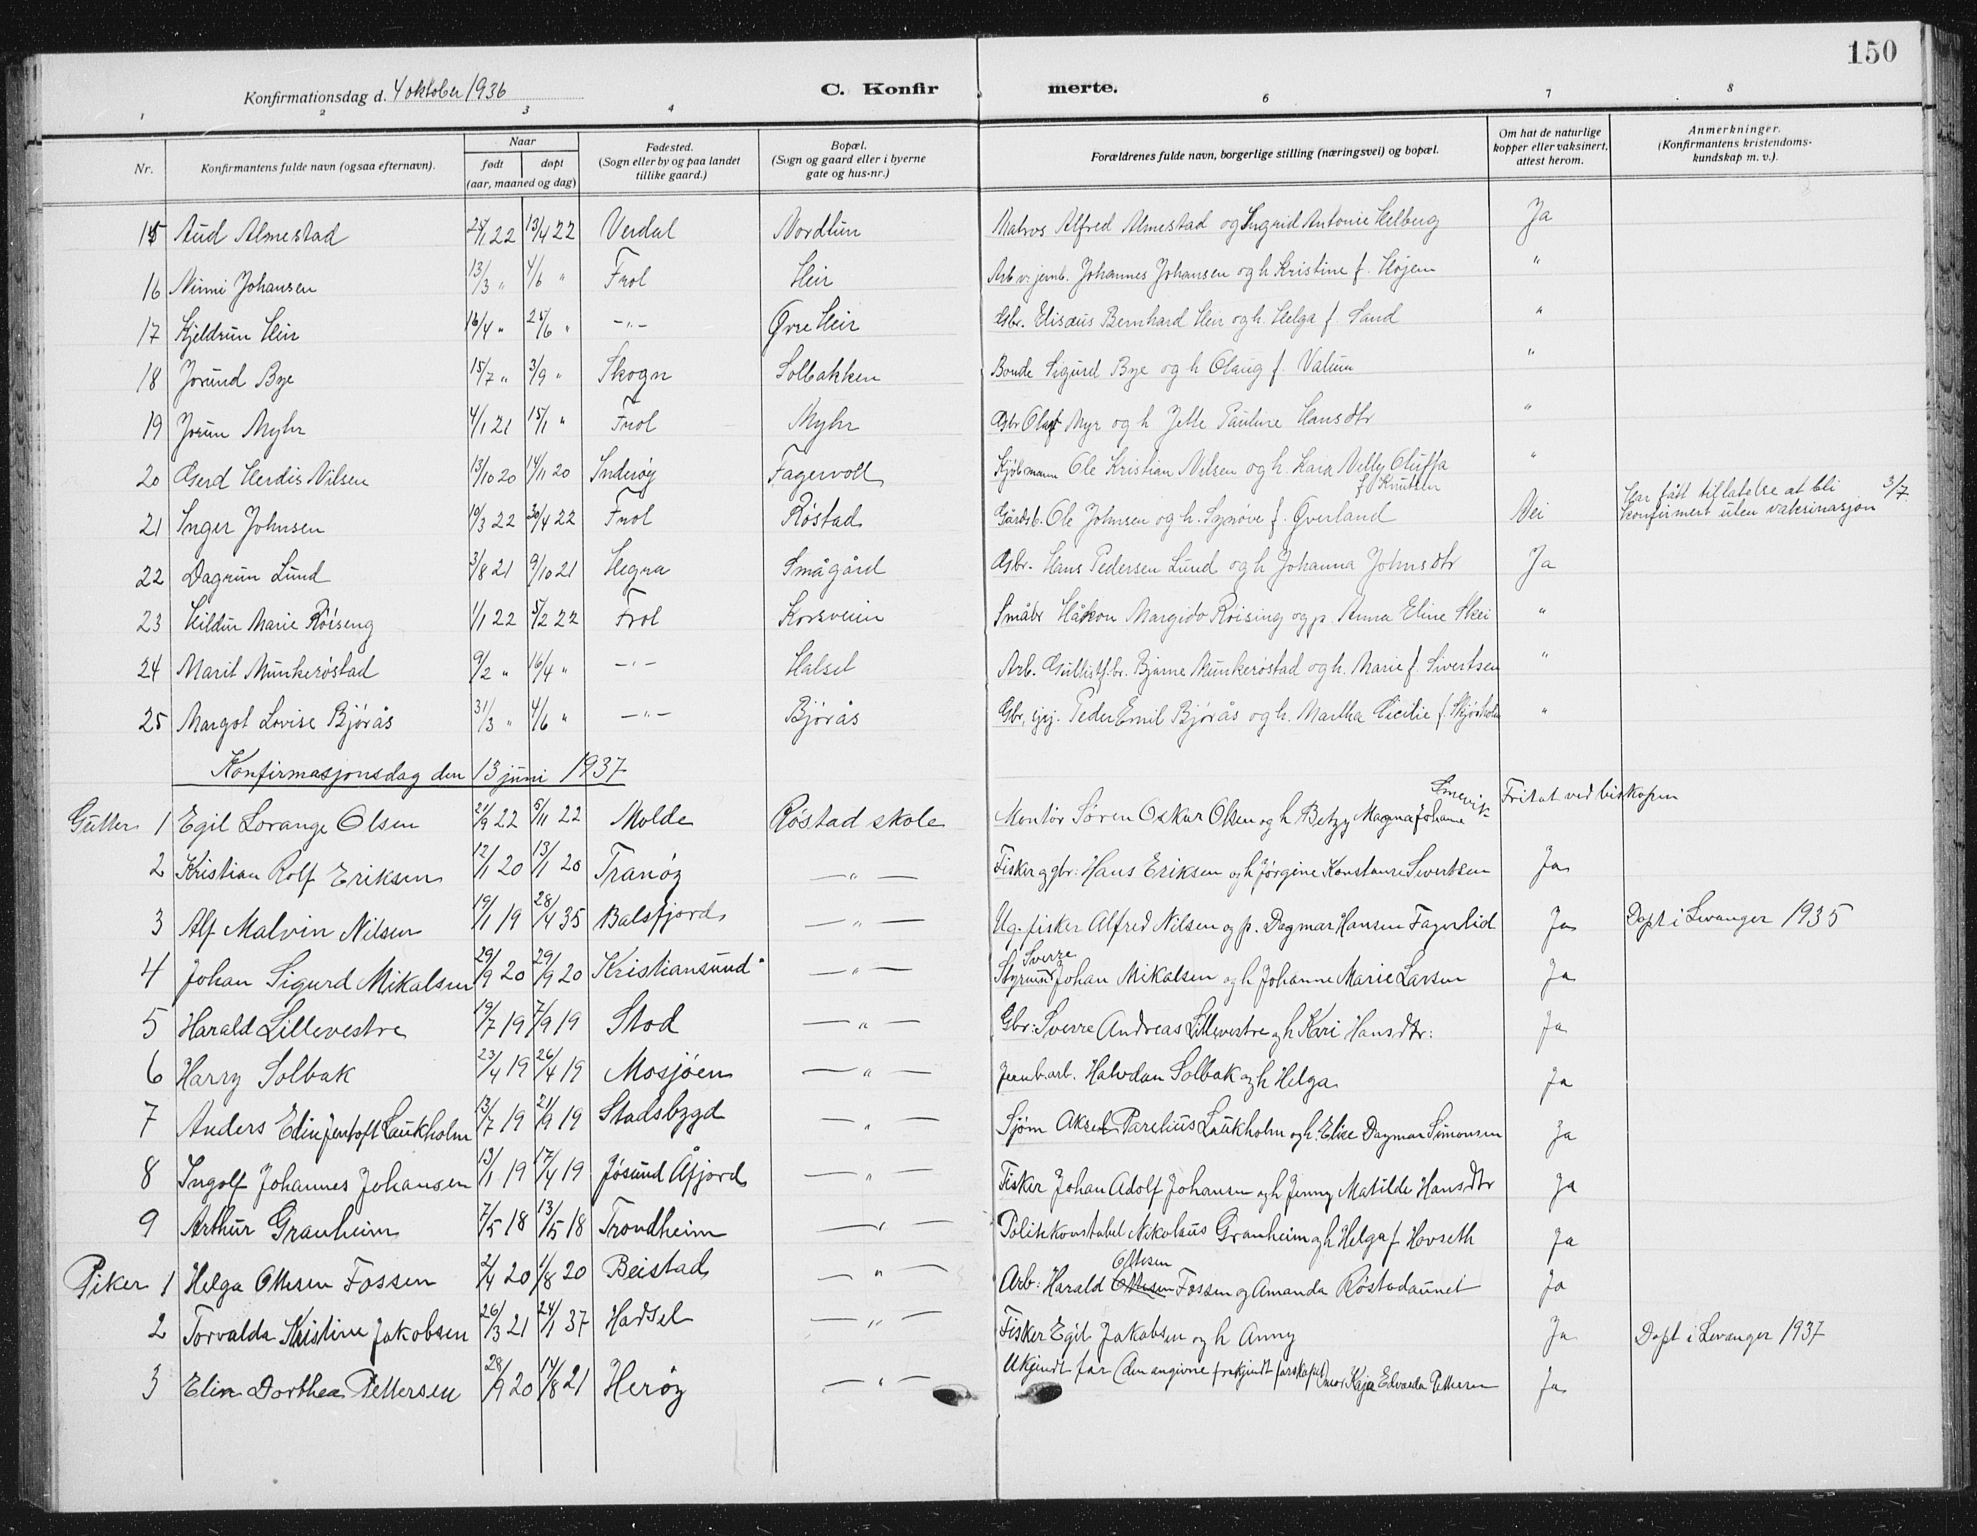 150
Konfirmationsdag d. 4 oktober 1936 C. Konfir merte.
1 2 3 4 6 7 8
Nr. Konfirmantens fulde navn (ogsaa efternavn). Naar født døpt (aar, maaned og dag) Fødested. (Sogn eller by og paa landet tillike gaard.) Bopæl. (Sogn og gaard eller i byerne gate og hus-nr.) Forældrenes fulde navn, borgerlige stilling (næringsvei) og bopæl. Om hat de naturlige kopper eller vaksinert, attest herom. Anmerkninger. (Konfirmantens kristendoms-kundskap m. v.).
15 Aud Almestad 24/1 22 13/4 22 Verdal Nordlun Matros Alfred Almestad og Ingrid Antonie Helberg Ja
16 Ninni Johansen 13/3 " 4/6 " Frol Heir Arb. v. jernb. Johannes Johansen og h Kristine f. Højem "
17 Kjeldrun Heir 16/4 " 25/6 " -"- Øvre Heir Gbr. Elisæus Bernhard Heir og h. Helga f. Sand "
18 Jorund Bye 15/7 " 3/9 " Skogn Solbakken Bonde Sigurd Bye og h Olaug f. Valum "
19 Jorun Myhr 4/1 21 15/1 " Frol Myhr Gbr Olaf Myr og h Jette Pauline Hansdtr "
20 Gerd Herdis Nilsen 13/10 20 14/11 20 Inderøy Fagervoll Kjøbmann Ole Kristian Nilsen og h. Kaia Nelly Oluffa f Knutsen "
21 Inger Johnsen 10/3 22 30/4 22 Frol Røstad Gårdsb. Ole Johnsen og h. Synøve f. Øverland Nei Har fått tillatelse at bli konfirmert uten vaksinasjon 3/7
22 Dagrun Lund 3/8 21 9/10 21 Hegra Smågård Gbr. Hans Pedersen Lund og h Johanna Johnsdtr Ja
23 Hildur Marie Röiseng 1/1 22 5/2 22 Frol Korsveien Småbr Håkon Margido Röising og p. Anna Eline Skei "
24 Marit Munkerøstad 9/2 " 16/4 " -"- Halsel Arb. Bjarne Munkerøstad og h. Marie f. Sivertsen "
25 Margot Lovise Bjørås 31/3 " 4/6 " -"- Bjørås Gbr, Peder Emil Bjørås og h. Martha Cecilie f. "
Konfirmasjonsdag den 13 juni 1937
Gutter 1 Egil Lorange Olsen 21/9 22 5/11 22 Molde Røstad skole Montör Søren Oskar Olsen og h Betzy Magna Johanne Fritat ved biskopen
2 Kristian Rolf Eriksen 12/1 20 13/1 20 Tranöy -"- Fisker og gbr: Hans Eriksen og h Jørgine Konstanse Sivertsen Ja
3 Alf Malvin Nilsen 19/1 19 28/4 35 Balsfjord -"- Ug. fisker Alfred Nilsen og p. Dagmar Hansen Fagerlid Ja Døpt i Levanger 1935
4 Johan Sigurd Mikalsen 29/9 20 29/9 20 Kristiansund -"- Styrmand Sverre Johan Mikalsen og h Johanne Marie Larsen Ja
5 Harald Lillevestre 19/7 19 7/9 19 Stod -"- Gbr: Sverre Andreas Lillevestre og h Kari Hansdtr: Ja
6 Harry Solbak 23/4 19 26/4 19 Mosjöen -"- Jernb.arb. Halvdan Solbak og h Helga Ja
7 Anders Edin Jentoft Laukholm 13/7 19 21/9 19 Stadsbygd -"- Sjøm Aksel Parelius Laukholm og h. Elise Dagmar Simonsen Ja
8 Ingolf Johannes Johansen 13/1 19 17/4 19 Jøsund Åfjord -"- Fisker Johan Adolf Johansen og h Jenny Matilde Hansdtr Ja
9 Arthur Granheim 7/5 18 13/5 18 Trondheim -"- Politikonstabel Nikolaus Granheim og h Helga f Hovseth Ja
Piker 1 Helga Ottesen Fossen 2/4 20 1/8 20 Beistad -"- Arb: Harald Ottesen Fossen og Amanda Røstadaunet Ja
2 Torvalda Kristine Jakobsen 26/3 21 24/1 37 Hadsel -"- Fisker Egil Jakobsen og h Anny Ja Døpt i Levanger 1937
3 Elin Dorthea Pettersen 28/9 20 14/8 21 Herøy -"- Ukjendt far (den angivne frakjendt farskapet) mor: Kaja Edvarda Pettersen Ja